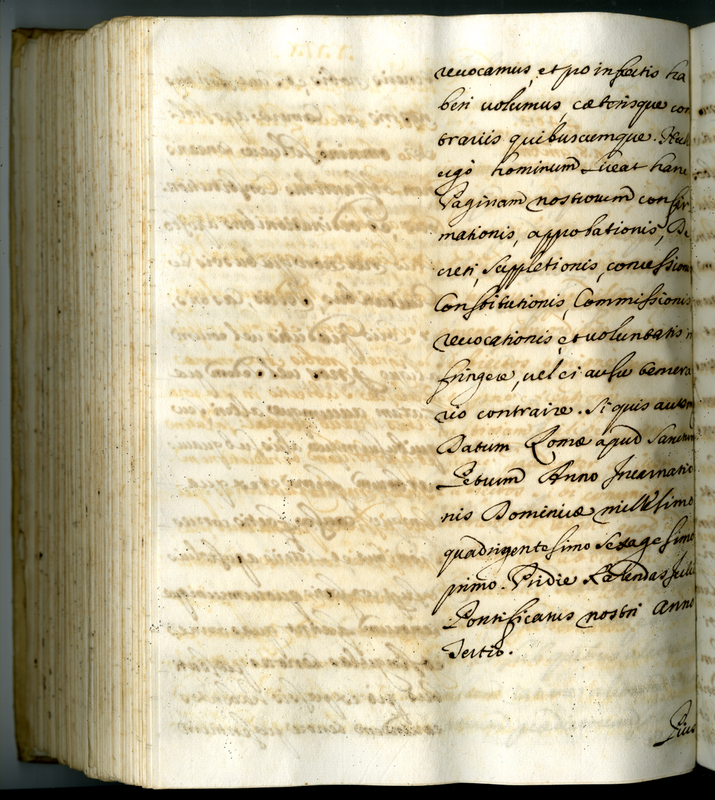 revocamus, et pro infectis ha
beri volumus, cæterisque con
trariis quibuscumque. Nulli
ergo hominum Liceat hanc
Paginam nostrorum confir
mationis, approbationis, De
creti, Suppletionis, concession
Constitutionis, Commissionis
revocationis et voluntatis in
fringere, vel ei ausu temera
rio contraire. Si quis autem
Datum Romæ apud Sanctum
Petrum Anno Incarnatio
nis Dominicæ millesimo
quadrigentesimo Sexagesimo
primo. Pridie Kalendas Julii
Pontificatus nostri Anno
Tertio.
Pius